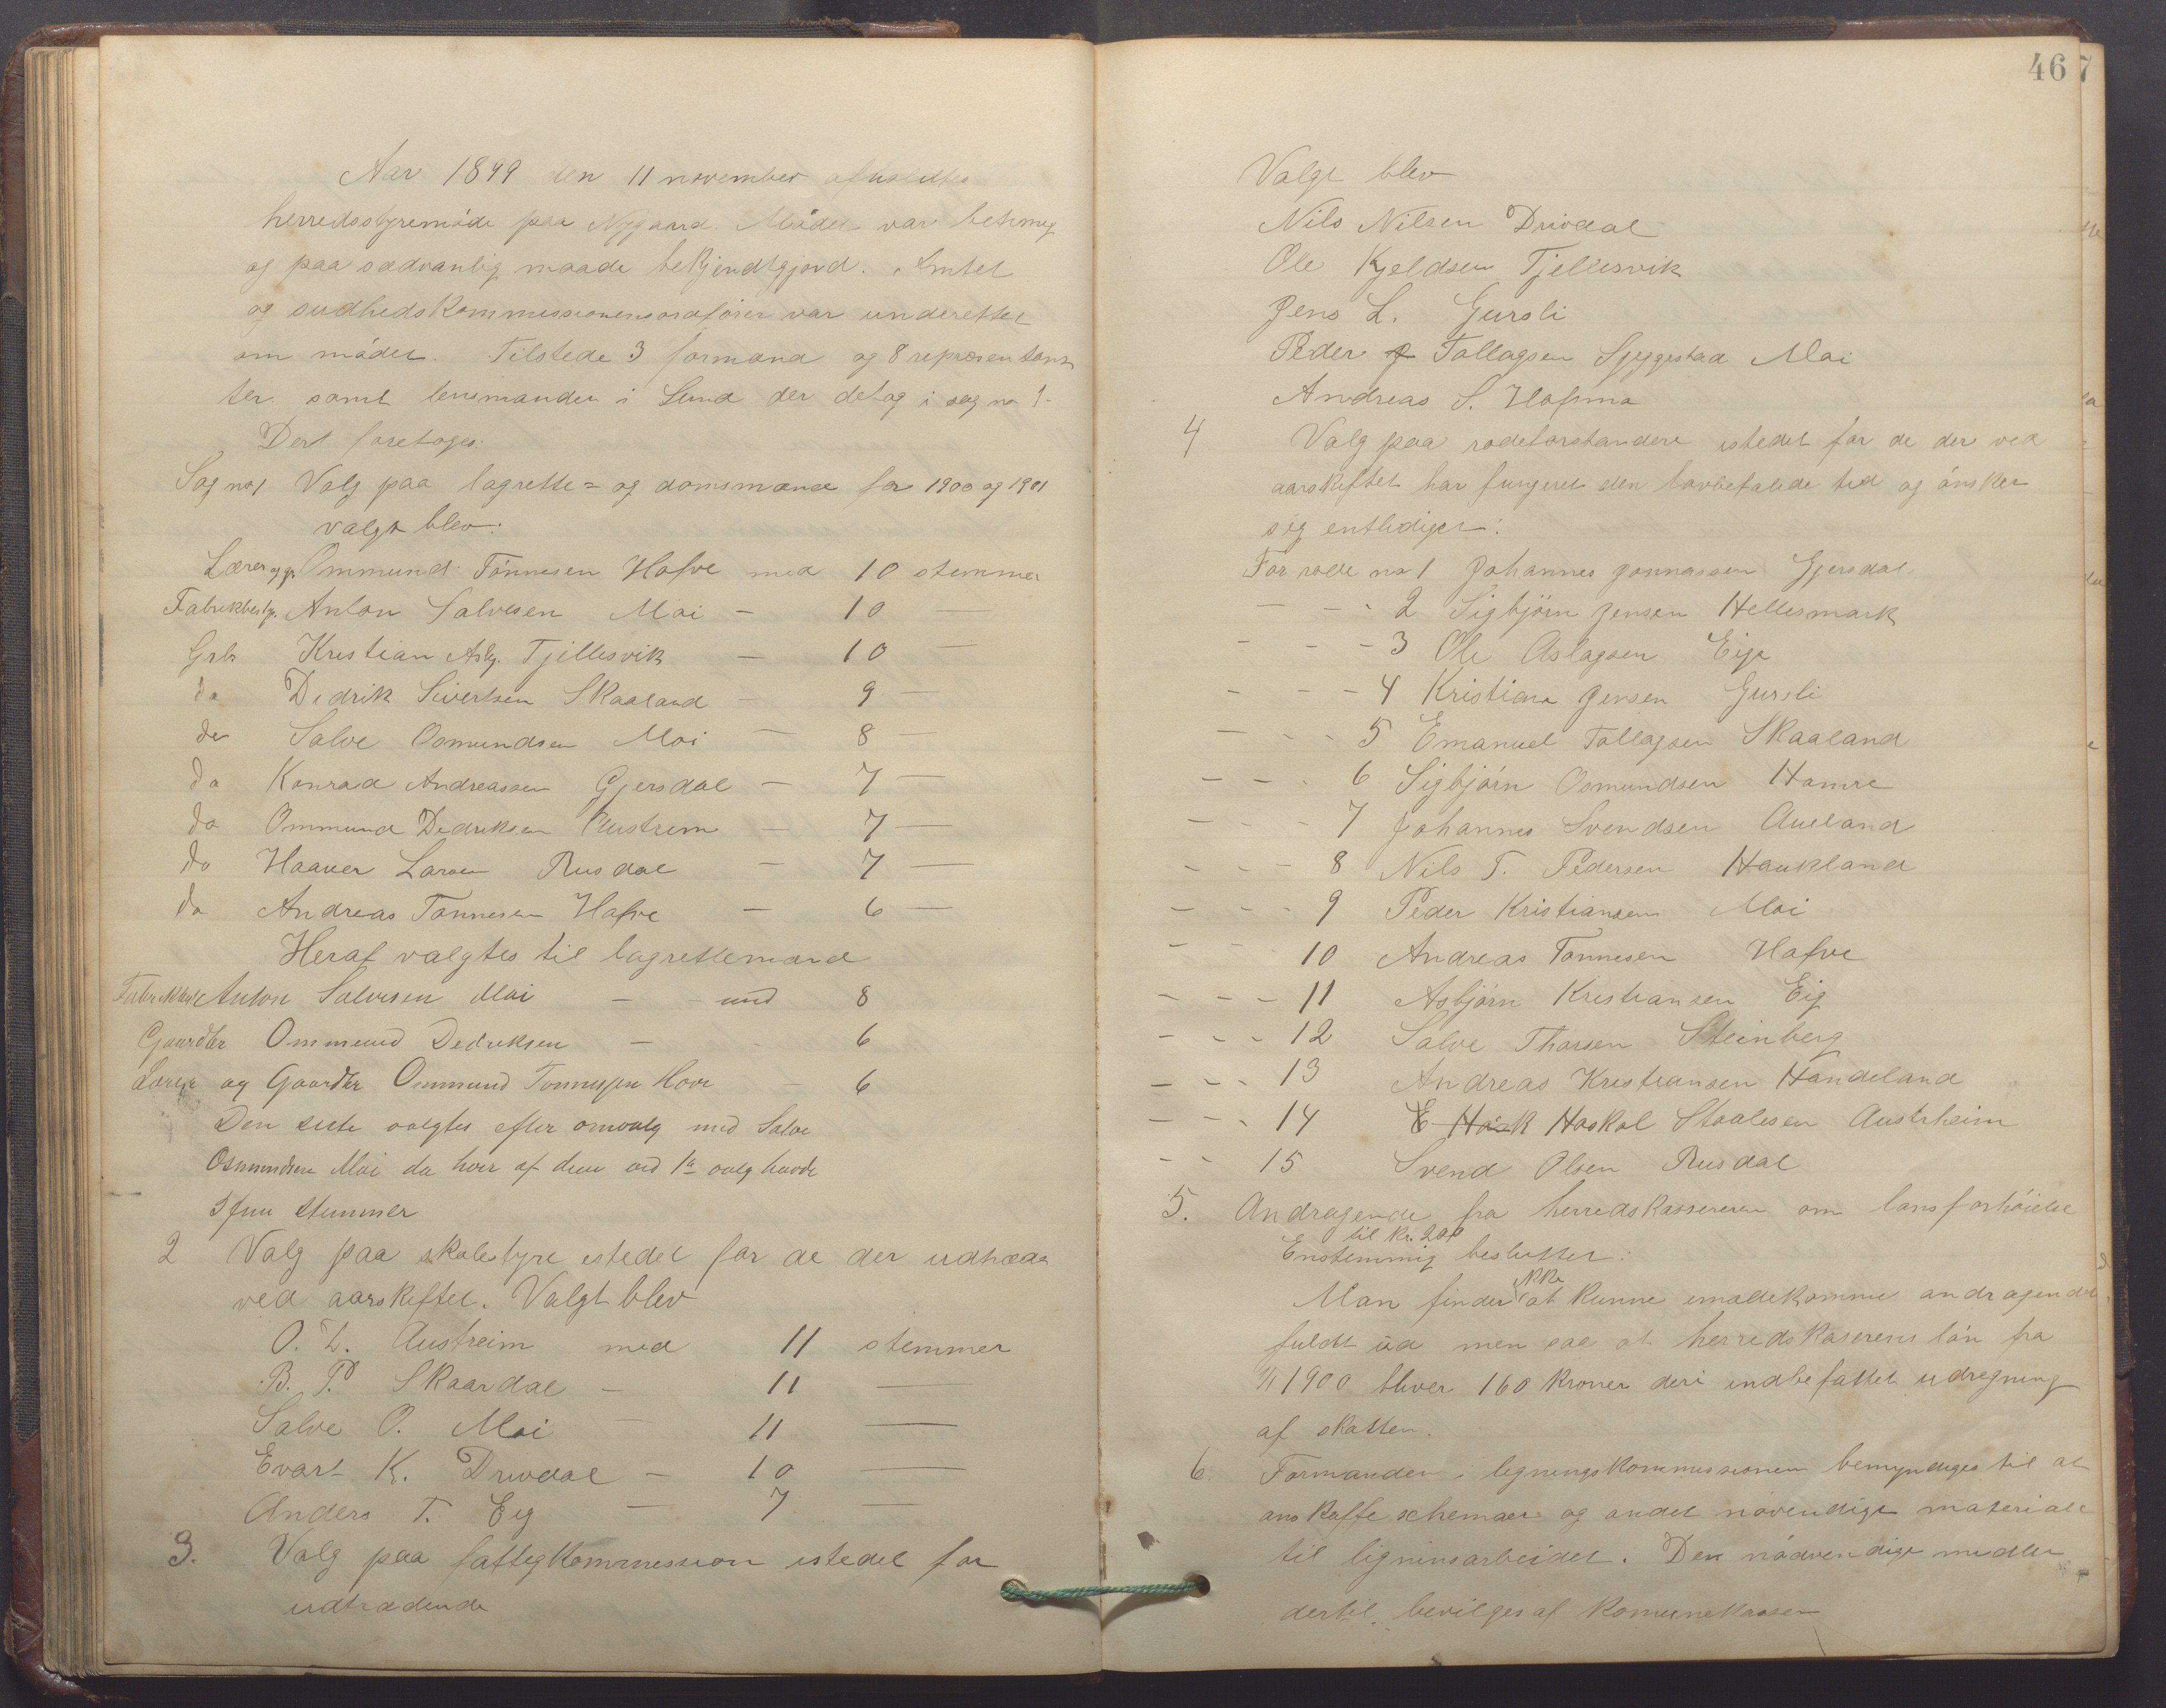 Aar 1899 den 11 november afholdtes
herredsstyremöde paa Nygaard. Mödet var betimeg
og paa sædvanlig maade bekjendtgjord. Amtet
og sudhedskommissionensordförer var underettet
om mödet. Tilstede 3 formænd og 8 repræsentan
ter samt lensmanden i Lund der deltog i sag no 1.
Dert foretoges:
Sag no 1 Valg paa lagrette= og domsmænd for 1900 og 1901
valgt blev:
Lærer og gr Ommund Tönnesen Hafve med 10 stemmer
Fabrikbestyr. Anton Salvesen Moi — 10 —
Grbr Kristian Aslg. Tjellesvik — 10 —
do Didrik Sivertsen Skaaland — 9 —
do Salve Osmundsen Moi — 8 —
do Konrad Andreassen Gjersdal — 7 —
do Ommund Dedreksen Austrem — 7 —
do Haaver Larsen Rusdal — 7 —
do Andreas Tönnesen Hafve — 6 —
Heraf valgtes til lagrettemænd
Anton Salvesen Moi — med 8
Gaardbr Ommund Dedreksen — - 6
Lærer og Gaardbr Ommund Tonnesjen Hove — 6
Den siste valgtes efter omvalg med Salve
Osmundsen Moi da hver af dem ved 1ste valg havde
5 fem stemmer
2 Valg paa skolestyre istedet for de der udtræde
ved aarskiftet. Valgt blev
O. T. Austreim med 11 stemmer
B. P. Skaardal — 11 —
Salve O. Moi — 11 —
Evart K. Drivdal — 10 —
Anders T. Eig — 7 —
3. Valg paa fattigkommission istedet for
udtrædende
46 7
Valgt blev
Nils Nilsen Drivdal
Ole Kjeldsen Tjellesvik
Jens L. Gursli
Peder Tollagsen Sjeggestad Moi
Andreas S. Hafsmo
4 Valg paa rodeforstandere istedet for de der ved
aarskiftet har fungeret den lovbefalede tid og önsker
sig entlediget:
For rode no 1 Johannes Jonnassen Gjersdal
— — - 2 Sigbjörn Jensen Hellesmark
- - - 3 Ole Aslagsen Eige
- - - 4 Kristian Jensen Gursli
— - - 5 Emanuel Tollagsen Skaaland
- - - 6 Sigbjörn Osmundsen Hamre
- - - 7 Johannes Svendsen Aueland
- - - 8 Nils T. Pedersen Haukland
- - - 9 Peder Kristiansen Moi
- - 10 Andreas Tönnesen Hafve
- - - 11 Asbjörn Kristiansen Eig
- - - 12 Salve Tharsen Steinberg
- - - 13 Andreas Kristiansen Handeland
- - - 14 Haskol Staalesen Austrheim
- - 15 Svend Olsen Rusdal
5. Andragende fra herredskassereren om lönsforhöielse
til kr. 200
Enstemmig besluttet:
Man finder ikke at kunne imödekomme andragendet
fuldt ud men saa at herredskaserens lön fra
1/1 1900 bliver 160 kroner deri indbefattet udregning
af skatten.
6. Formanden i ligningskommissionen bemyndiges til at
anskaffe schemaer og andet növendige materiale
til ligninsarbeidet. Den nödvendige midler
dertil bevilges af komunekassen